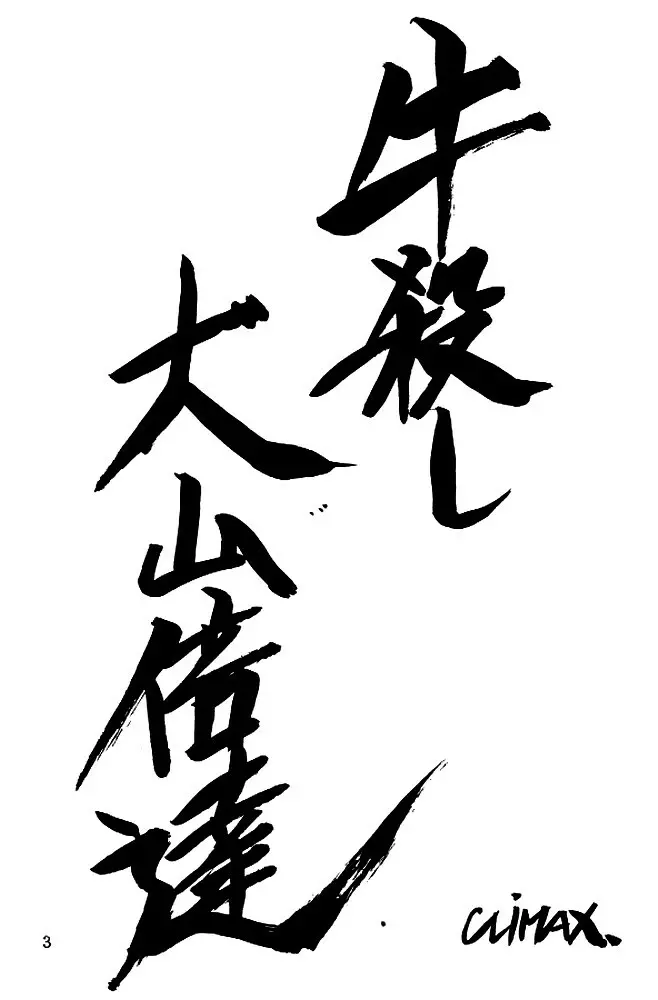 牛殺し
大山倍達
CLiMAX.
3